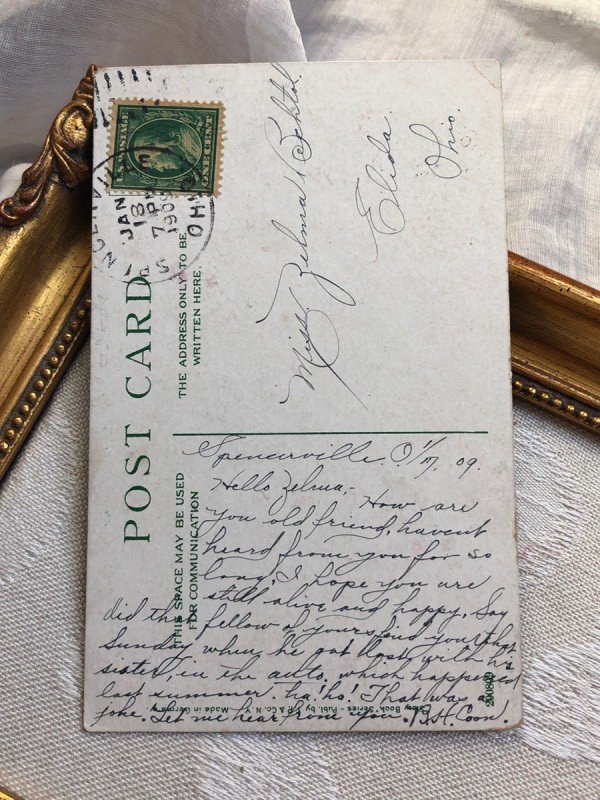 U.S. POSTAGE
ONE CENT
JAN
18
7 PM
1909
OHIO
POST CARD
THE ADDRESS ONLY TO BE
WRITTEN HERE.
Miss Zelma
Elida
Ohio.
THIS SPACE MAY BE USED
FOR COMMUNICATION
Spencerville. O. 1/17, 09.
Hello Zelma,- How are
you old friend, havent
heard from you for so
long, I hope you are
still alive and happy. Say
did that fellow of yours find you that
Sunday when he got lost with his
sister, in the auto, which happened
last summer. ha! ho! That was a
joke. Let me hear from you. H. Coon.
Book" Series - Publ. by P. & Co. N.Y. Made in Germany